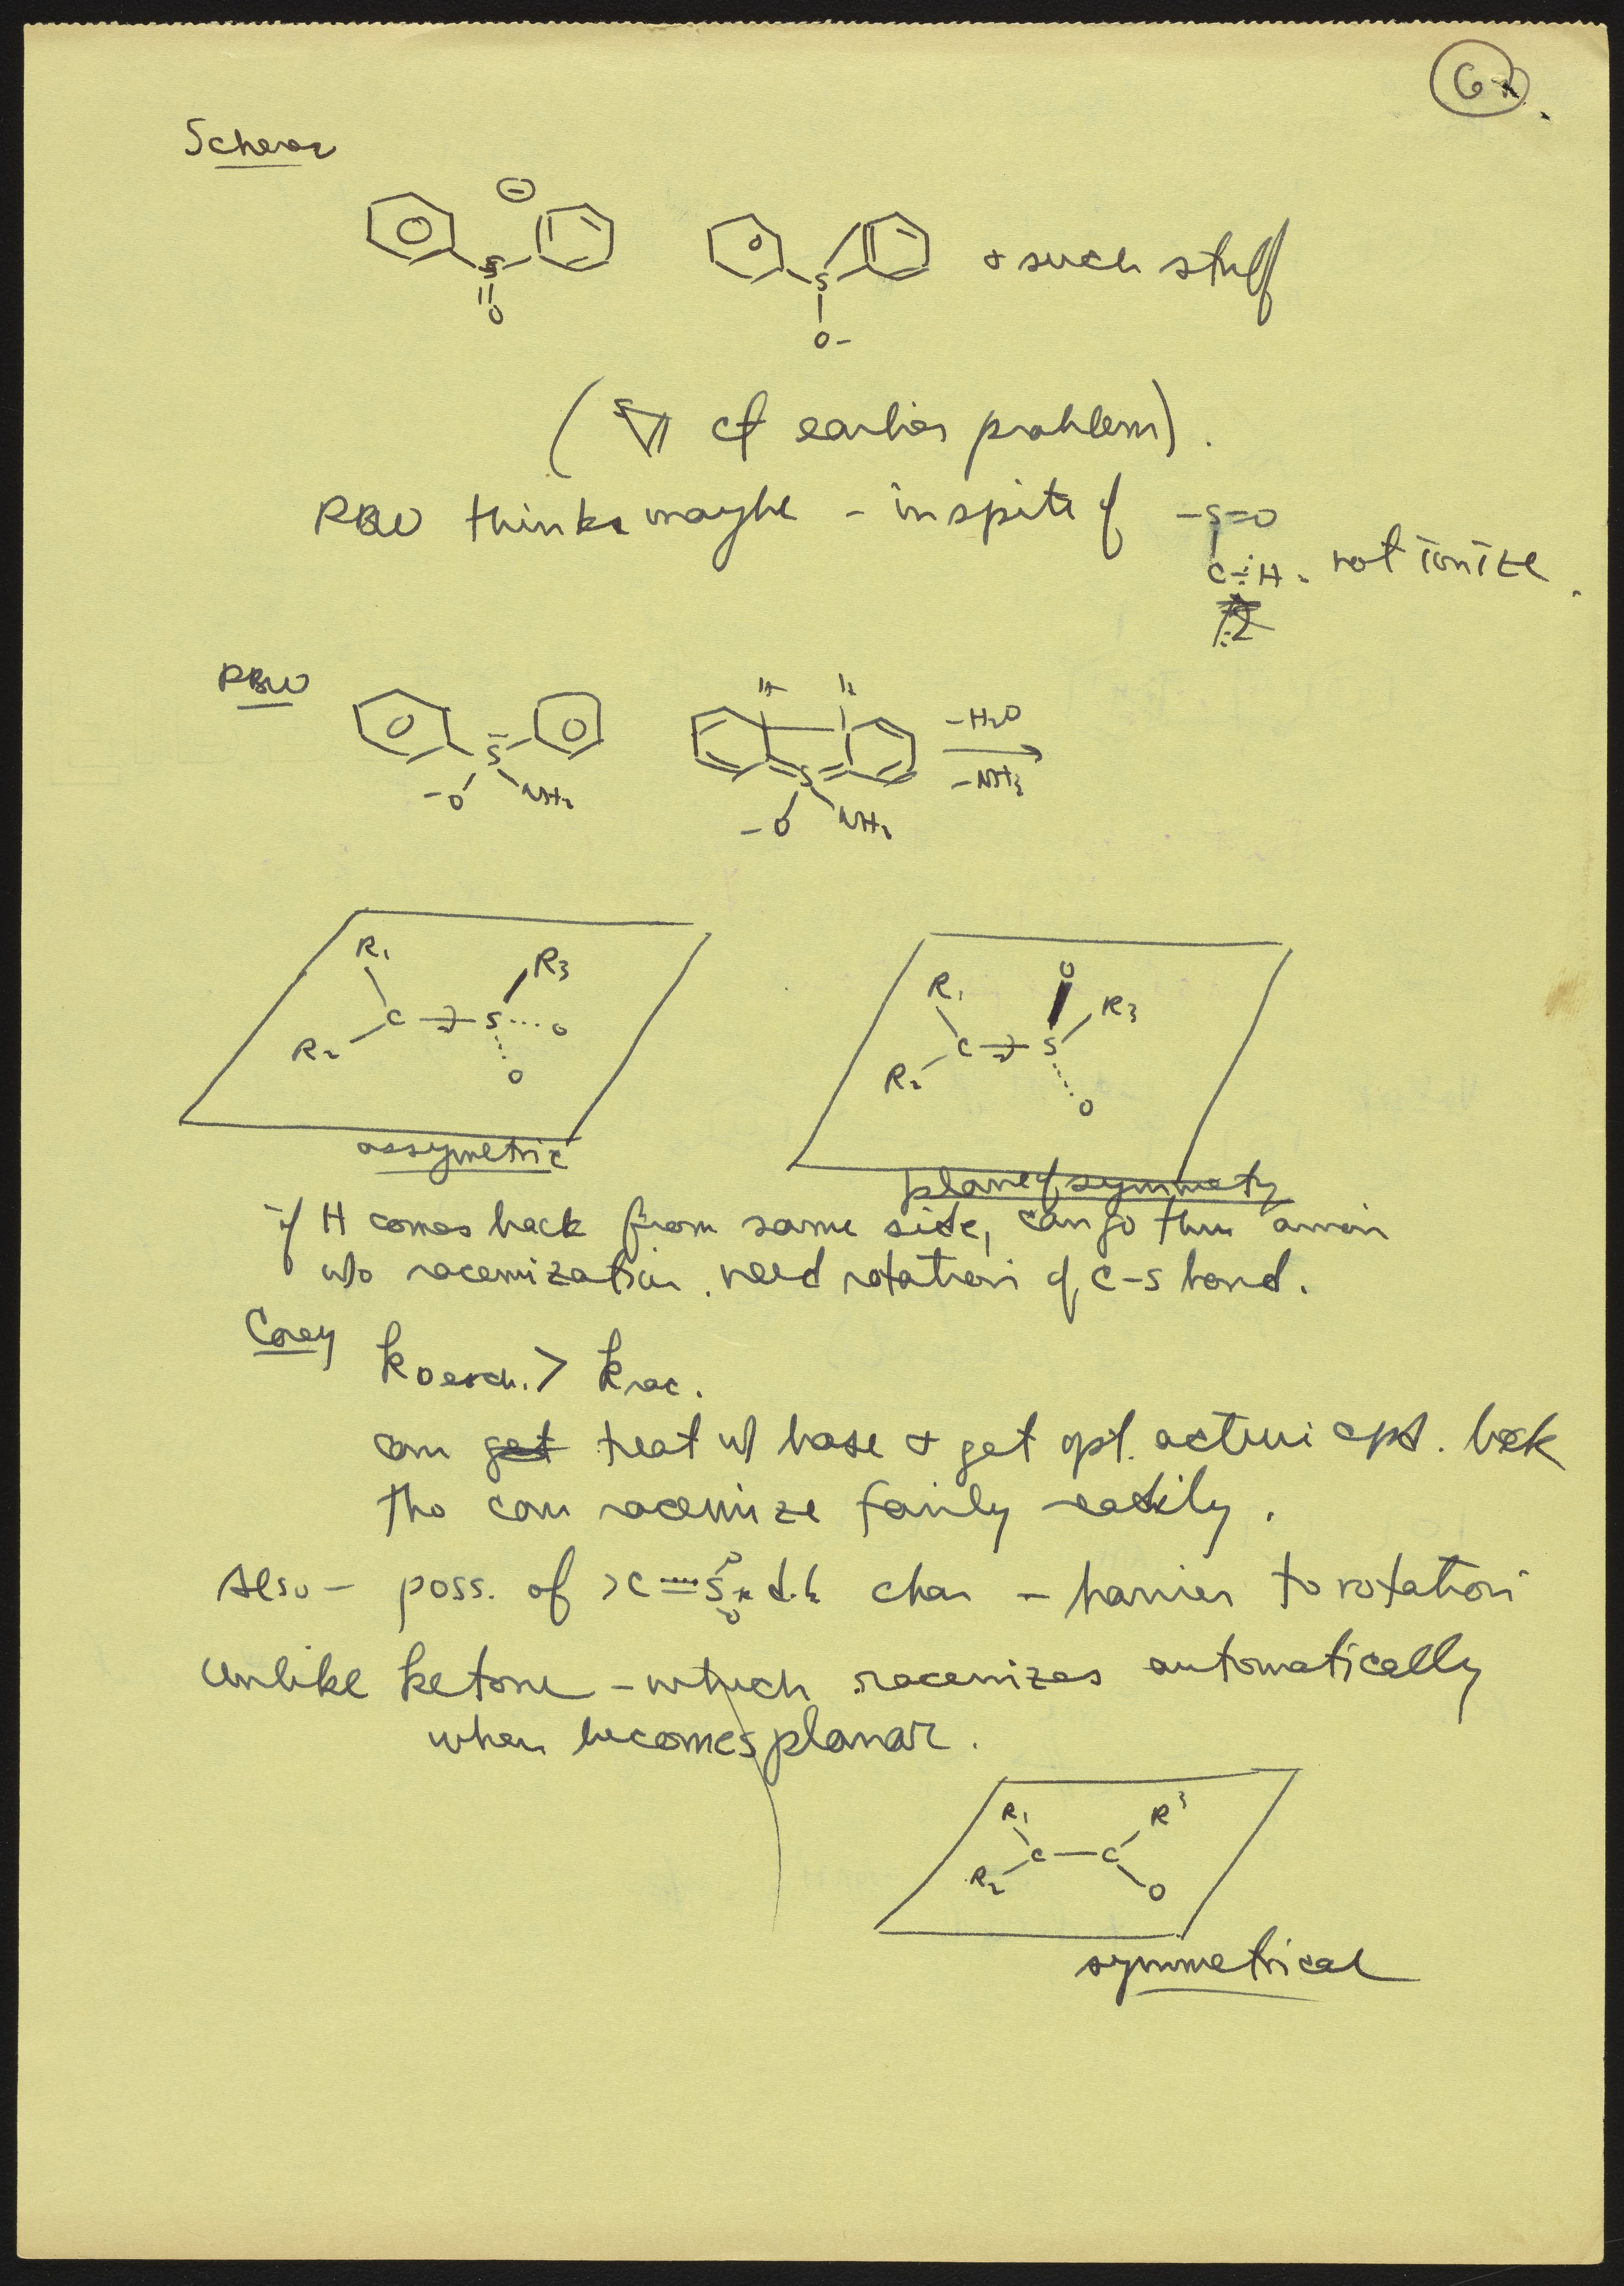 6
Scherer
⊖
S
O
S
O-
+ such stuff
(S cf earlier problem).
RBW thinks maybe - inspite of -S=O
C-H - not ionize.
RBW
S
-O NH2
H H
S
-O NH2
-H2O
-NH3
R1 R3
C S O
R2 O
assymetric
O
R1 R3
C S
R2 O
plane of symmety
if H comes back from same side, can go thru anion
w/o racemization. need rotation of C-S bond.
Corey
k D exch. > k rac.
can get treat w/ base + get opt. active cpd. back
tho can racemize fairly easily.
Also - poss. of >C=S d.b. char - barrier to rotation
unlike ketone - which racemizes automatically
when becomes planar.
R1 R3
C-C
R2 O
symmetrical